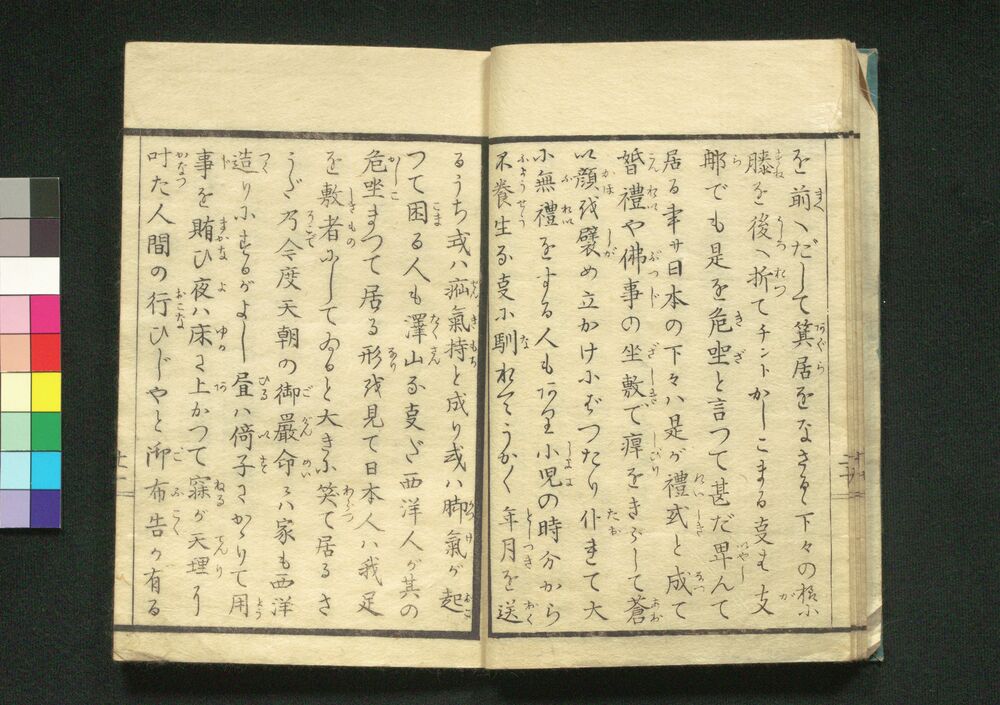 を前へだして箕居をなさる下々の様ニ
膝を後へ折てチントかしこまる事も支
那でも是を危坐と言つて甚だ卑んて
居る事サ日本の下々ハ是が禮式と成て
婚禮や佛事の坐敷で痺をきらして蒼
い顔或躄め立かけにばつたり仆れて大
小無禮をする人もあり小児の時分から
不養生な事に馴れてうかく年月を送
るうち或ハ疝氣持と成り或ハ脚氣が起
つて困る人も澤山な事だ西洋人が其の
危坐まつて居る形を見て日本人ハ我足
を敷者にしてゐると大きに笑て居るさ
うだ乃今度天朝の御嚴命にハ家も西洋
造りにするがよし昼ハ倚子にかゝりて用
事を賄ひ夜ハ床に上がつて寐るが天理に
叶た人間の行ひじやと御布告が有る